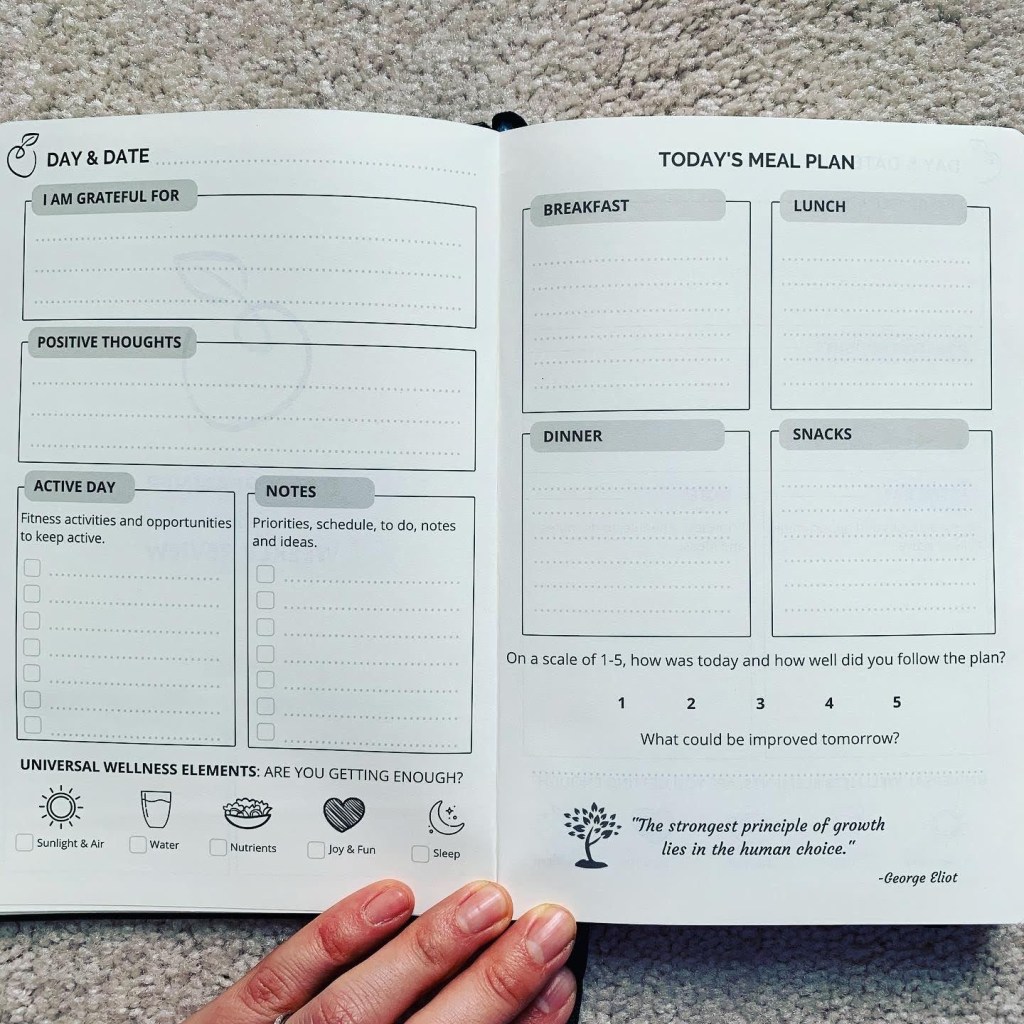 DAY & DATE
I AM GRATEFUL FOR
POSITIVE THOUGHTS
ACTIVE DAY
Fitness activities and opportunities
to keep active.
NOTES
Priorities, schedule, to do, notes
and ideas.
UNIVERSAL WELLNESS ELEMENTS: ARE YOU GETTING ENOUGH?
Sunlight & Air
Water
Nutrients
Joy & Fun
Sleep
TODAY'S MEAL PLAN
BREAKFAST
LUNCH
DINNER
SNACKS
On a scale of 1-5, how was today and how well did you follow the plan?
1 2 3 4 5
What could be improved tomorrow?
"The strongest principle of growth
lies in the human choice."
-George Eliot